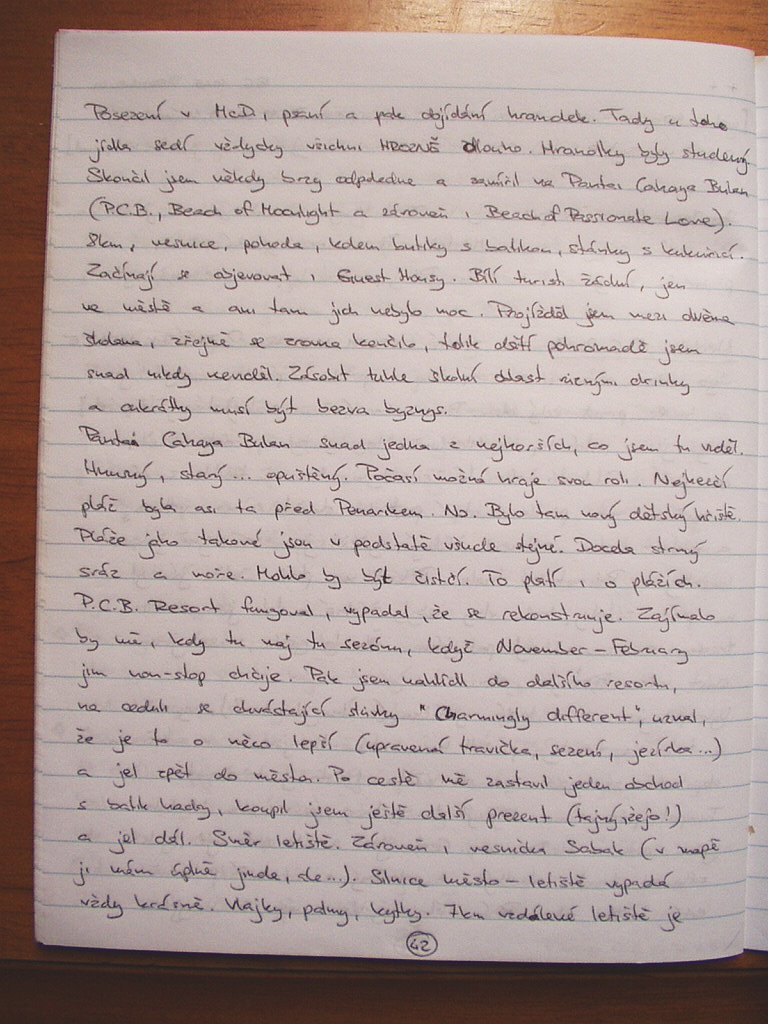 Posezení v McD, psaní a pak objídání hranolek. Tady u toho
jídla sedí vždycky všichni HROZNĚ dlouho. Hranolky byly studený.
Skončil jsem někdy brzy odpoledne a zamířil na Pantai Cahaya Bulan
(P.C.B., Beach of Moonlight a zároveň i Beach of Passionate Love).
8km, vesnice, pohoda, kolem butiky s batikou, stánky s kukuřicí.
Začínají se objevovat i Guest Housy. Bílí turisti žádní, jen
ve městě a ani tam jich nebylo moc. Projížděl jsem mezi dvěma
školama, zřejmě se zrovna končilo, tolik dětí pohromadě jsem
snad nikdy neviděl. Zásobit tuhle školní oblast různými drinky
a cukrátky musí být bezva byznys.
Pantai Cahaya Bulan snad jedna z nejhorších, co jsem tu viděl.
Hnusný, starý... opuštěný. Počasí možná hraje svou roli. Nejhezčí
pláž byla asi ta před Penarikem. No. Bylo tam nový dětský hřiště.
Pláže jako takové jsou v podstatě všude stejné. Docela strmý
sráz a moře. Mohlo by být čistčí. To platí i o plážích.
P.C.B. Resort fungoval, vypadal, že se rekonstruuje. Zajímalo
by mě, kdy tu maj tu sezónu, když November - February
jim non-stop chčije. Pak jsem nahlídl do dalšího resortu,
na ceduli se chvástající slovy "Charmingly different", uznal,
že je to o něco lepší (upravená travička, sezení, jezírka...)
a jel zpět do města. Po cestě mě zastavil jeden obchod
s batik hadry, koupil jsem ještě další prezent (tajný, žejo!)
a jel dál. Směr letiště. Zároveň i vesnička Sabak (v mapě
ji mám úplně jinde, ale...). Silnice město - letiště vypadá
vždy krásně. Vlajky, palmy, kytky. 7km vzdálené letiště je
42